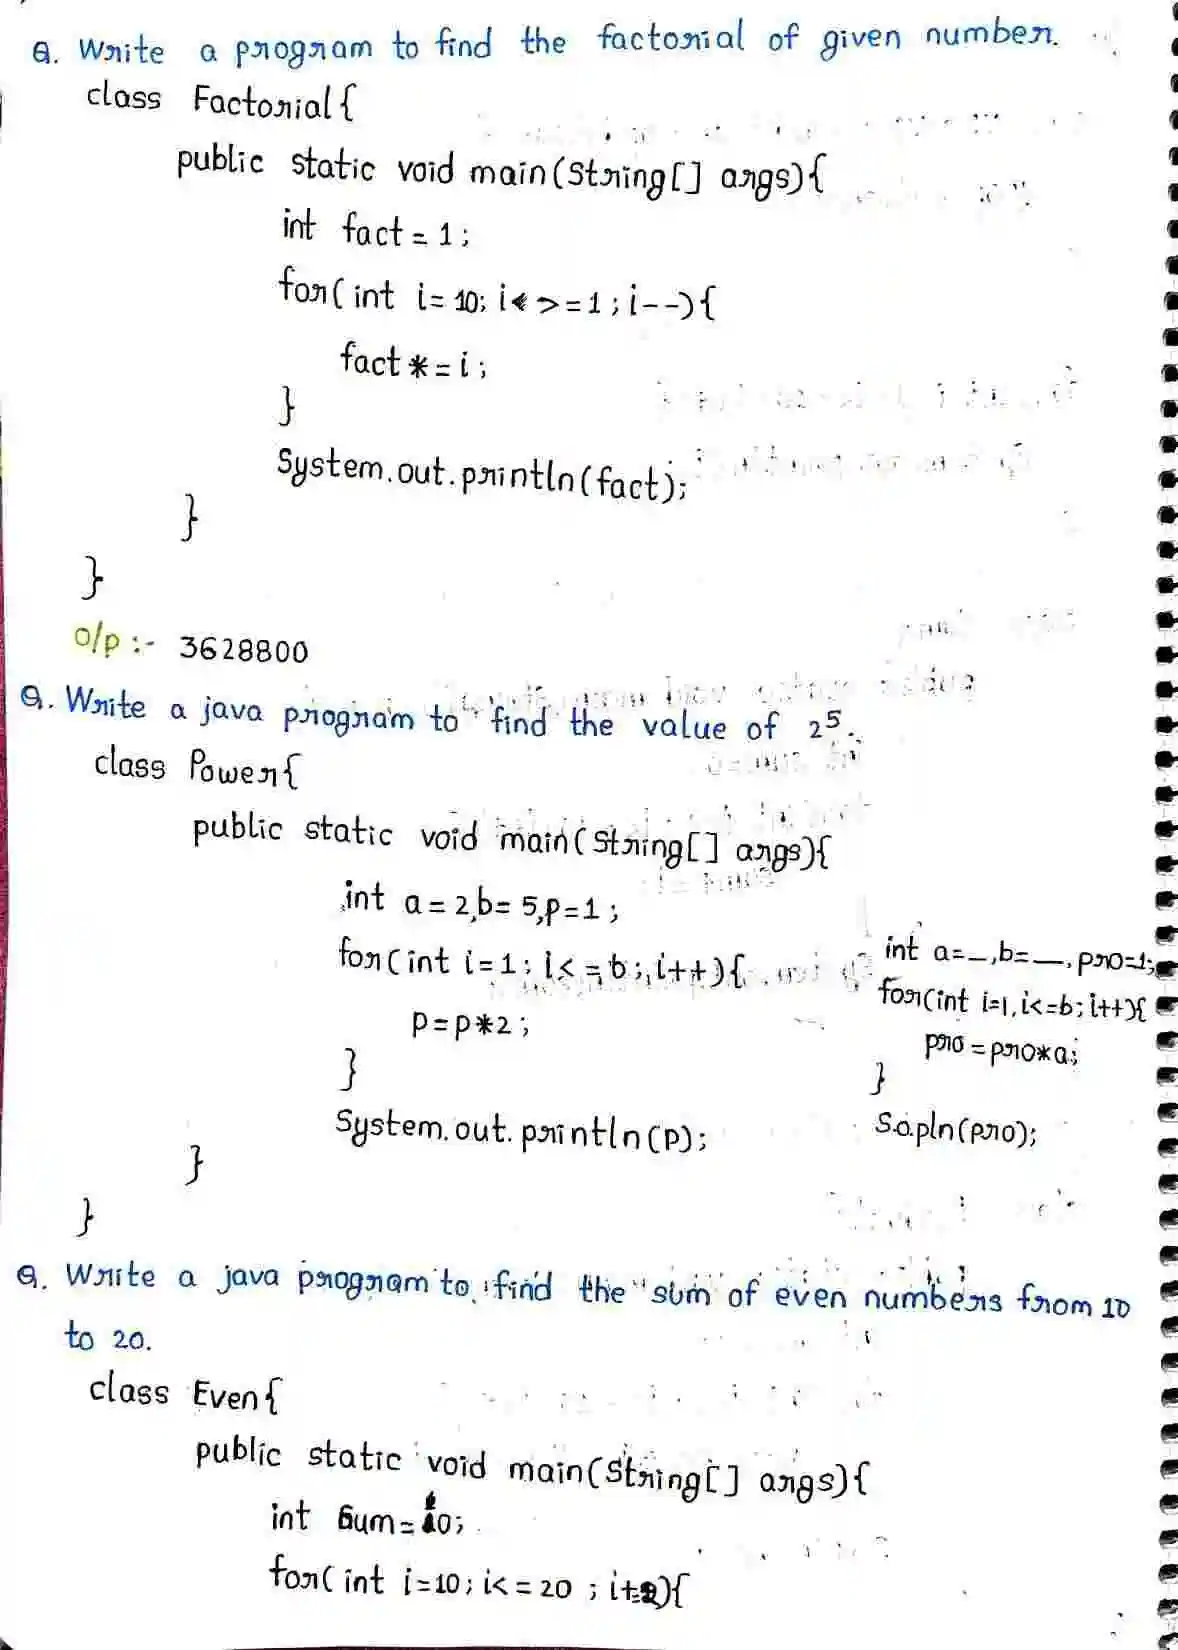 Q. Write a program to find the factorial of given number.
class Factorial{
public static void main(String[] args){
int fact = 1;
for(int i= 10; i >=1; i--){
fact *= i;
}
System.out.println(fact);
}
}
o/p :- 3628800
Q. Write a java program to find the value of 2⁵.
class Power{
public static void main(String[] args){
int a= 2,b= 5,p=1;
for(int i=1; i<=b; i++){
p=p*2;
}
System.out.println(p);
}
}
int a=_,b=__, pro=1;
for(int i=1, i<=b; i++){
pro = pro*a;
}
S.o.pln(pro);
Q. Write a java program to find the sum of even numbers from 10
to 20.
class Even{
public static void main(String[] args){
int sum= 0;
for(int i=10; i<= 20 ; i+=2){